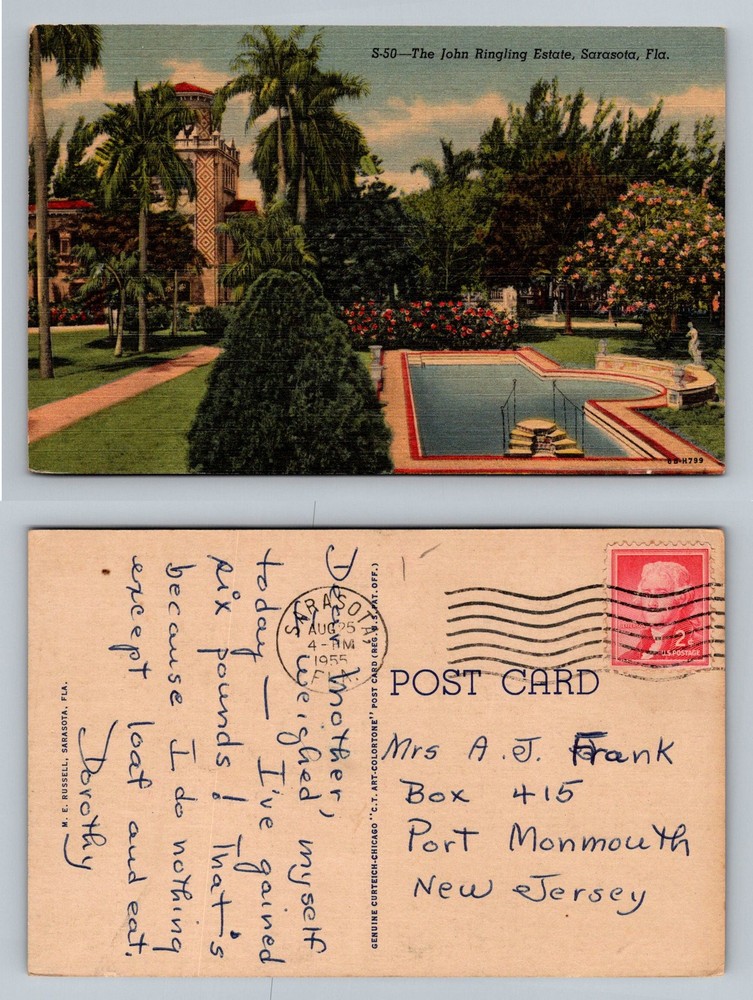 S-50—The John Ringling Estate, Sarasota, Fla.
6B-H799
Dear Mother,
I weighed myself
today — I've gained
six pounds! That's
because I do nothing
except loaf and eat.
Dorothy
M. E. RUSSELL, SARASOTA, FLA.
GENUINE CURTEICH-CHICAGO "C.T. ART-COLORTONE" POST CARD (REG. U.S. PAT. OFF.)
SARASOTA,
AUG 25
4-PM
1955
FLA.
2¢
U.S. POSTAGE
POST CARD
Mrs A. J. Frank
Box 415
Port Monmouth
New Jersey